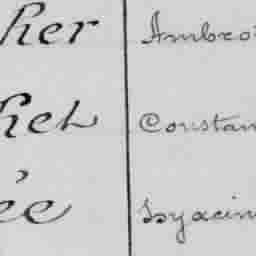 her Ambro
het Constan
ée Hyacin